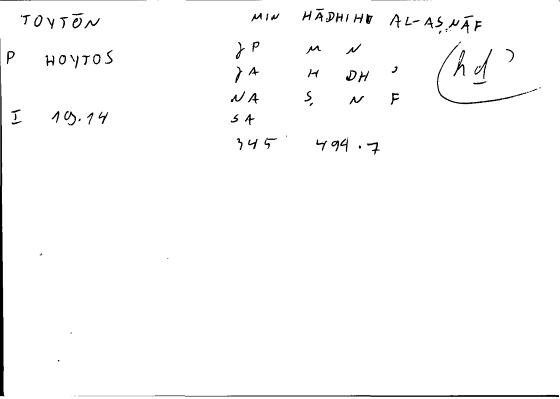 TOYTŌN MIN HĀDHIHI AL-AṢNĀF
JP M N
P HOYTOS
JA H DH ʾ (hd ʾ)
NA Ṣ N F
I 19.14 SA
345 494.7